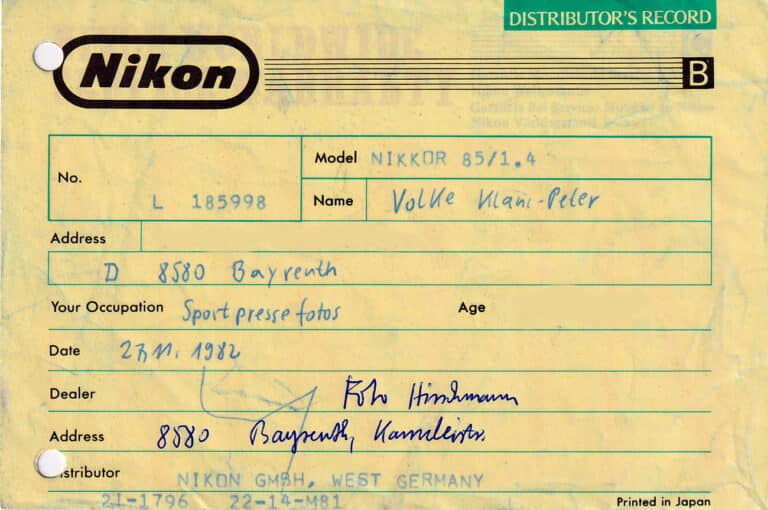 DISTRIBUTOR'S RECORD
Nikon B
No. L 185998
Model NIKKOR 85/1.4
Name Volke Klaus-Peter
Address
D 8580 Bayreuth
Your Occupation Sportpressefotos Age
Date 27.11.1982
Dealer Foto Hirschmann
Address 8580 Bayreuth,
Distributor NIKON GMBH, WEST GERMANY
21-1796 22-14-M81
Printed in Japan